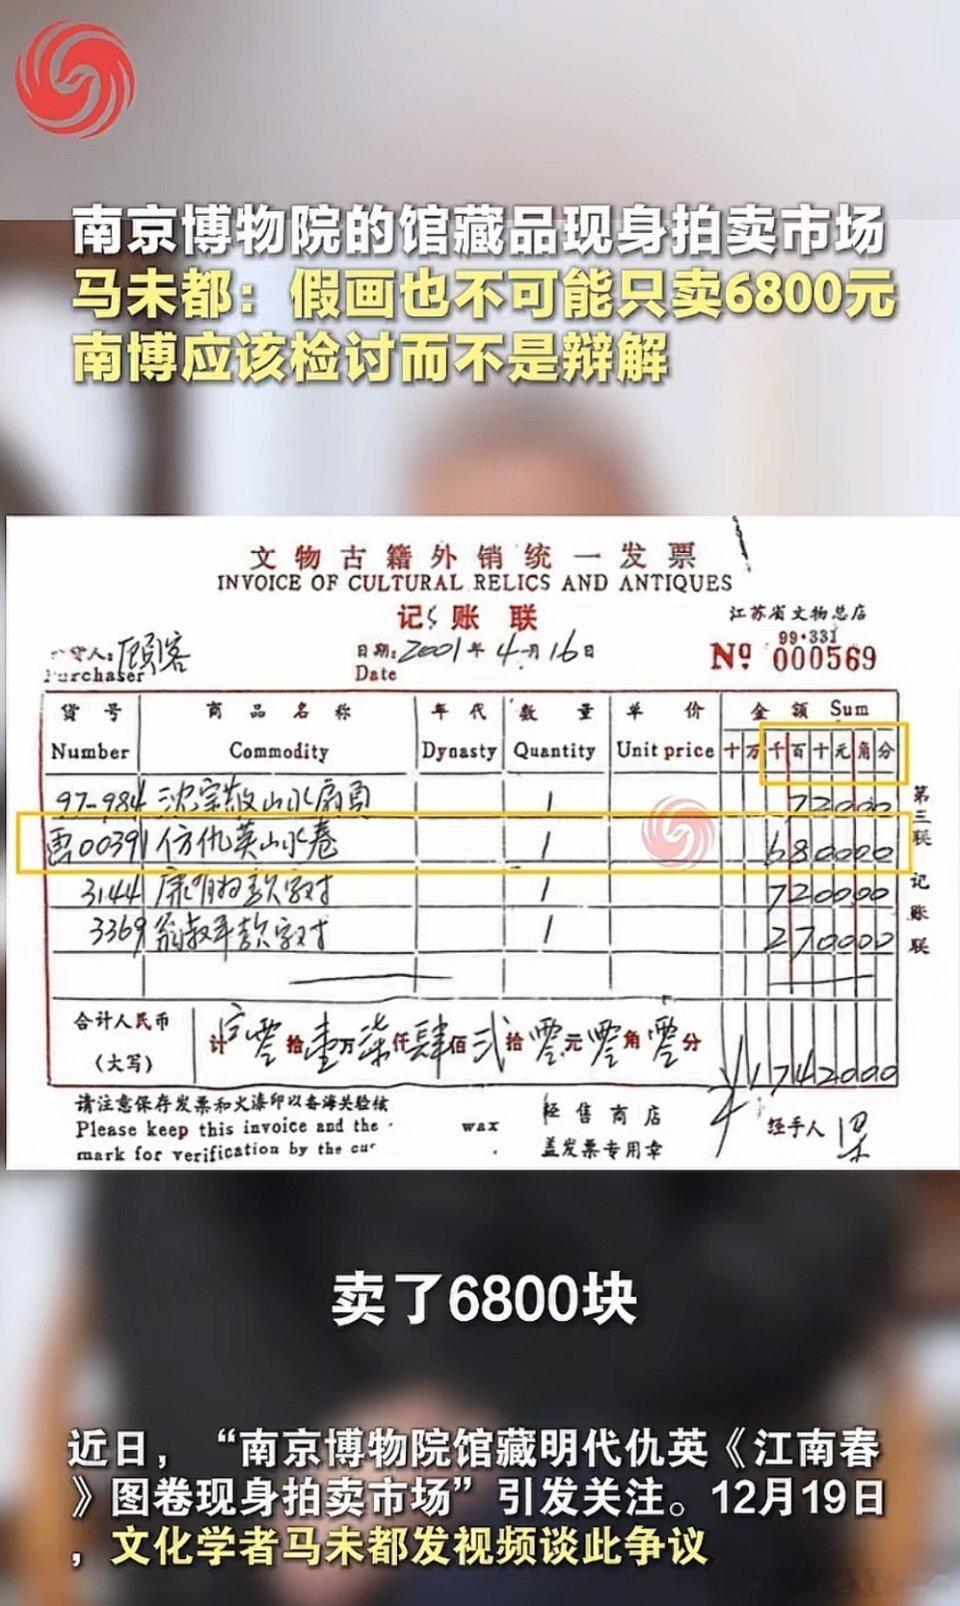 南京博物院的馆藏品现身拍卖市场
马未都：假画也不可能只卖6800元
南博应该检讨而不是辩解
文物古籍外销统一发票
INVOICE OF CULTURAL RELICS AND ANTIQUES
记账联
江苏省文物总店
99·331
货人：顾客
Purchaser
日期：2001年4月16日
Date
No 000569
货号 商品名称 年代 数量 单价 金额 Sum
Number Commodity Dynasty Quantity Unit price 十万千百十元角分
97-984 沈宗敬山水扇页 1 72000
0039 仿仇英山水卷 1 680000
3144 康有为款字对 1 720000
3369 翁叔年款字对 1 270000
第三联 记账联
合计人民币
（大写）
计 零拾壹万柒仟肆佰贰拾零元零角零分 1742000
请注意保存发票和火漆印以备海关验核
Please keep this invoice and the wax
mark for verification by the cu
经售商店
盖发票专用章
经手人 梁
卖了6800块
近日，“南京博物院馆藏明代仇英《江南春
》图卷现身拍卖市场”引发关注。12月19日
，文化学者马未都发视频谈此争议